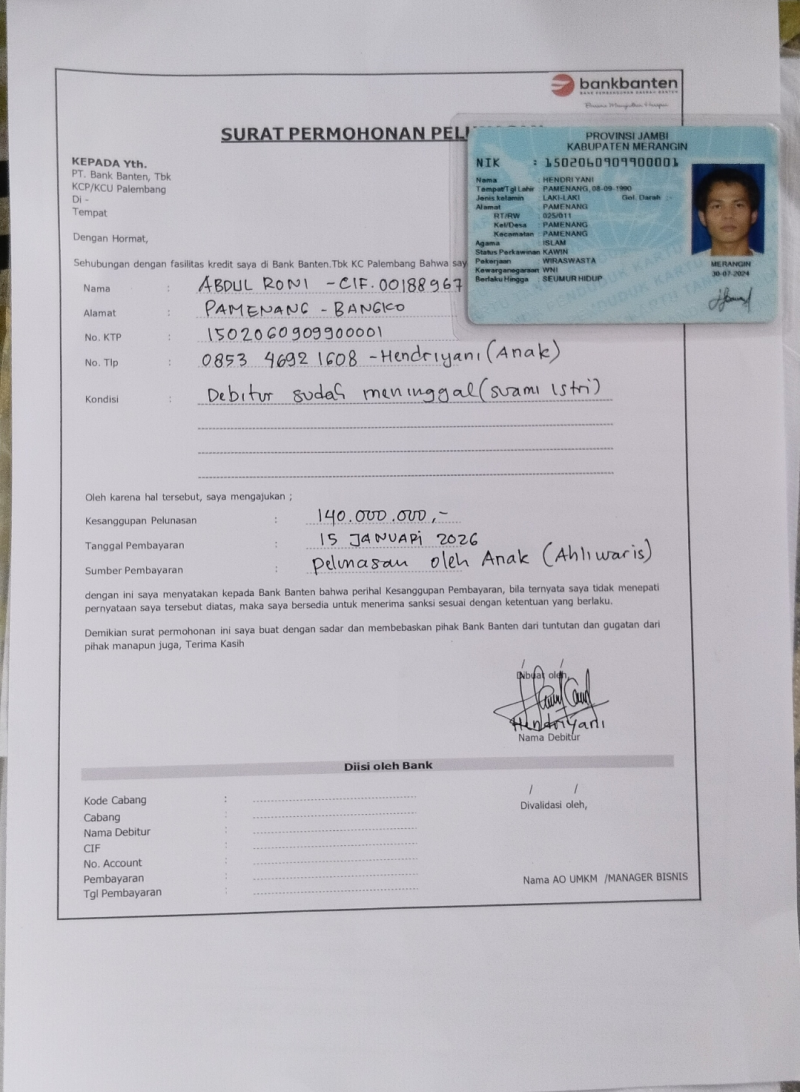 bankbanten
SURAT PERMOHONAN
KEPADA Yth.
PT. Bank Banten, Tbk
KCP/KCU Palembang
Di -
Tempat
Dengan Hormat,
Sehubungan dengan fasilitas kredit saya di Bank Banten.Tbk KC Palembang Bahwa say
Nama : ABDUL RONI - CIF. 00188967
Alamat : PAMENANG - BANGKO
No. KTP : 1502060909900001
No. Tlp : 0853 4692 1608 - Hendriyani (Anak)
Kondisi : Debitur sudah meninggal (suami istri)
PROVINSI JAMBI
KABUPATEN MERANGIN
NIK : 1502060909900001
Nama : HENDRI YANI
Tempat/Tgl Lahir : PAMENANG, 08-09-1990
Jenis kelamin : LAKI-LAKI Gol. Darah : -
Alamat : PAMENANG
RT/RW : 025/011
Kel/Desa : PAMENANG
Kecamatan : PAMENANG
Agama : ISLAM
Status Perkawinan : KAWIN
Pekerjaan : WIRASWASTA
Kewarganegaraan : WNI
Berlaku Hingga : SEUMUR HIDUP
MERANGIN
30-07-2024
Oleh karena hal tersebut, saya mengajukan ;
Kesanggupan Pelunasan : 140.000.000,-
Tanggal Pembayaran : 15 JANUARI 2026
Sumber Pembayaran : Pelunasan oleh Anak (Ahliwaris)
dengan ini saya menyatakan kepada Bank Banten bahwa perihal Kesanggupan Pembayaran, bila ternyata saya tidak menepati
pernyataan saya tersebut diatas, maka saya bersedia untuk menerima sanksi sesuai dengan ketentuan yang berlaku.
Demikian surat permohonan ini saya buat dengan sadar dan membebaskan pihak Bank Banten dari tuntutan dan gugatan dari
pihak manapun juga, Terima Kasih
/ /
Dibuat oleh,
Hendriyani
Nama Debitur
Diisi oleh Bank
Kode Cabang :
Cabang :
Nama Debitur :
CIF :
No. Account :
Pembayaran :
Tgl Pembayaran :
/ /
Divalidasi oleh,
Nama AO UMKM /MANAGER BISNIS